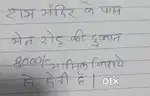 राम मंदिर के पास
मेन रोड की दुकान
8000/- मासिक किराये
से देनी है।
OLX